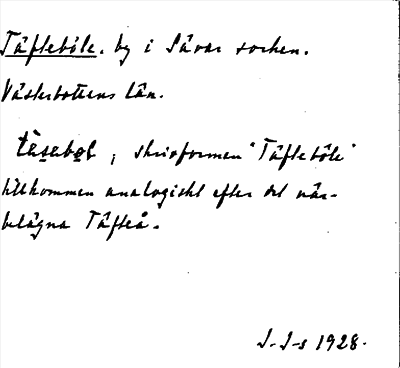 Täfteböle. by i Sävar socken.
Västerbottens län.
täsabol ; skrivformen "Täfteböle"
tillkommen analogiskt efter det när-
belägna Täfteå.
J-J-s 1928.